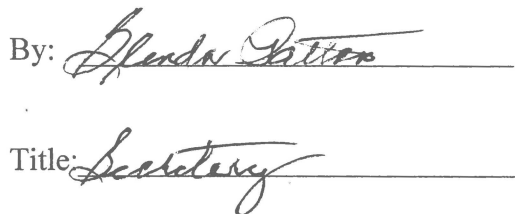 By: Glenda Patton
Title: Secretary